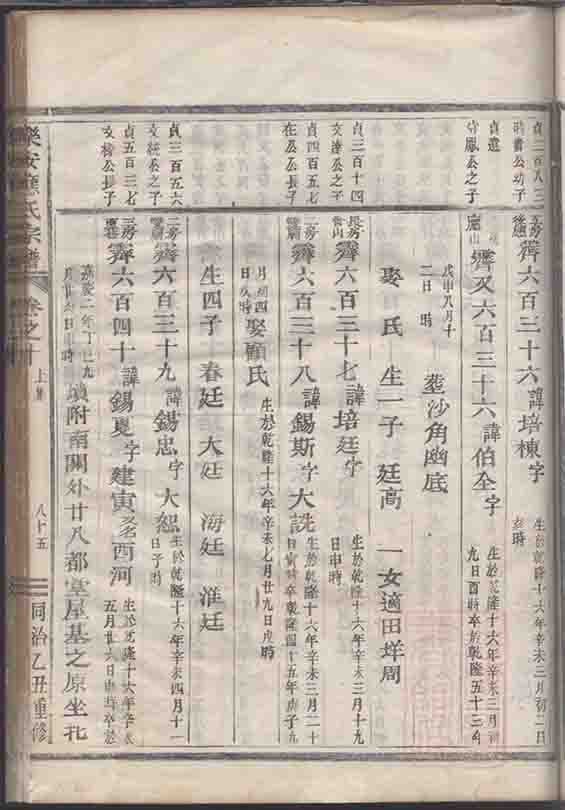 貞二百八三
時 公幼子
霽六百三十六諱培棟字
生於乾隆十六年辛未三月初二日
亥時
貞邅
守鳳公之子
霽又六百三十六諱伯全字
生於乾隆十六年辛未三月初
九日酉時卒於乾隆五十三年
戊申八月十
二日 時
塟沙角幽底
娶 氏 生一子 廷高 一女適田垟周
貞三百十四
文達公之子
長房 霽六百三十七諱培廷字
生於乾隆十六年辛未三月十九
日申時
貞四百五七
在 公長子
二房 霽六百三十八諱錫斯字大詵
生於乾隆十六年辛未三月二十
日寅時卒乾隆四十五年庚子九
月初四
日 時
娶顧氏
生於乾隆十六年辛未七月廿九日戌時
生四子 春廷 大廷 海廷 淮廷
貞三百五六
文 公之子
二房 霽六百三十九諱錫忠字大恕
生於乾隆十六年辛未四月十一
日子時
貞五百三七
文 公長子
三房 霽六百四十諱錫夏字建寅又名西河
生於乾隆十六年辛未
五月廿六日申時卒於
嘉慶二年丁巳九
月廿 日申時
墳附南關外廿八都堂屋基之原坐北
樂安 氏宗譜
卷之十
上集
八十五
同治乙丑重修